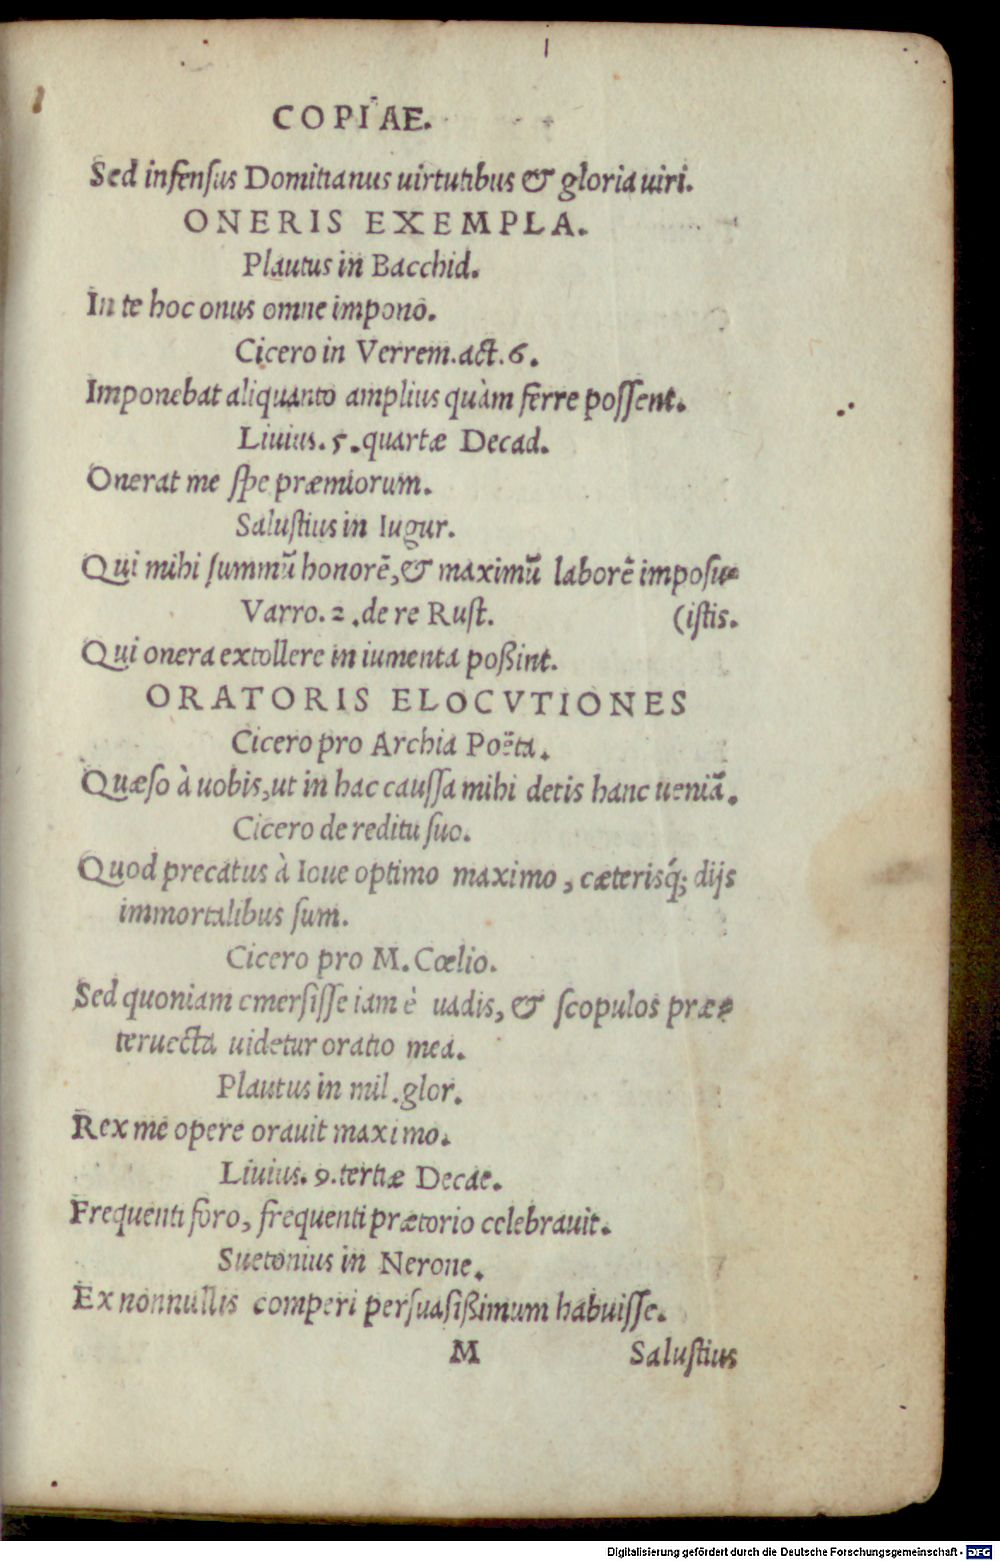 COPIAE.
Sed infensus Domitianus uirtutibus & gloria uiri.
ONERIS EXEMPLA.
Plautus in Bacchid.
In te hoc onus omne impono.
Cicero in Verrem. act. 6.
Imponebat aliquanto amplius quàm ferre possent.
Liuius. 5. quartæ Decad.
Onerat me spe præmiorum.
Salustius in Iugur.
Qui mihi summũ honorẽ, & maximũ laborẽ imposu-
Varro. 2. de re Rust. (istis.
Qui onera extollere in iumenta poßint.
ORATORIS ELOCVTIONES
Cicero pro Archia Poëta.
Quæso à uobis, ut in hac caussa mihi detis hanc ueniã.
Cicero de reditu suo.
Quod precatus à Ioue optimo maximo, cæterisq́; dijs
immortalibus sum.
Cicero pro M. Cœlio.
Sed quoniam emersisse iam è uadis, & scopulos præ-
teruecta uidetur oratio mea.
Plautus in mil. glor.
Rex me opere orauit maximo.
Liuius. 9. tertiæ Decae.
Frequenti foro, frequenti prætorio celebrauit.
Suetonius in Nerone.
Ex nonnullis comperi persuasißimum habuisse.
M Salustius
Digitalisierung gefördert durch die Deutsche Forschungsgemeinschaft - DFG